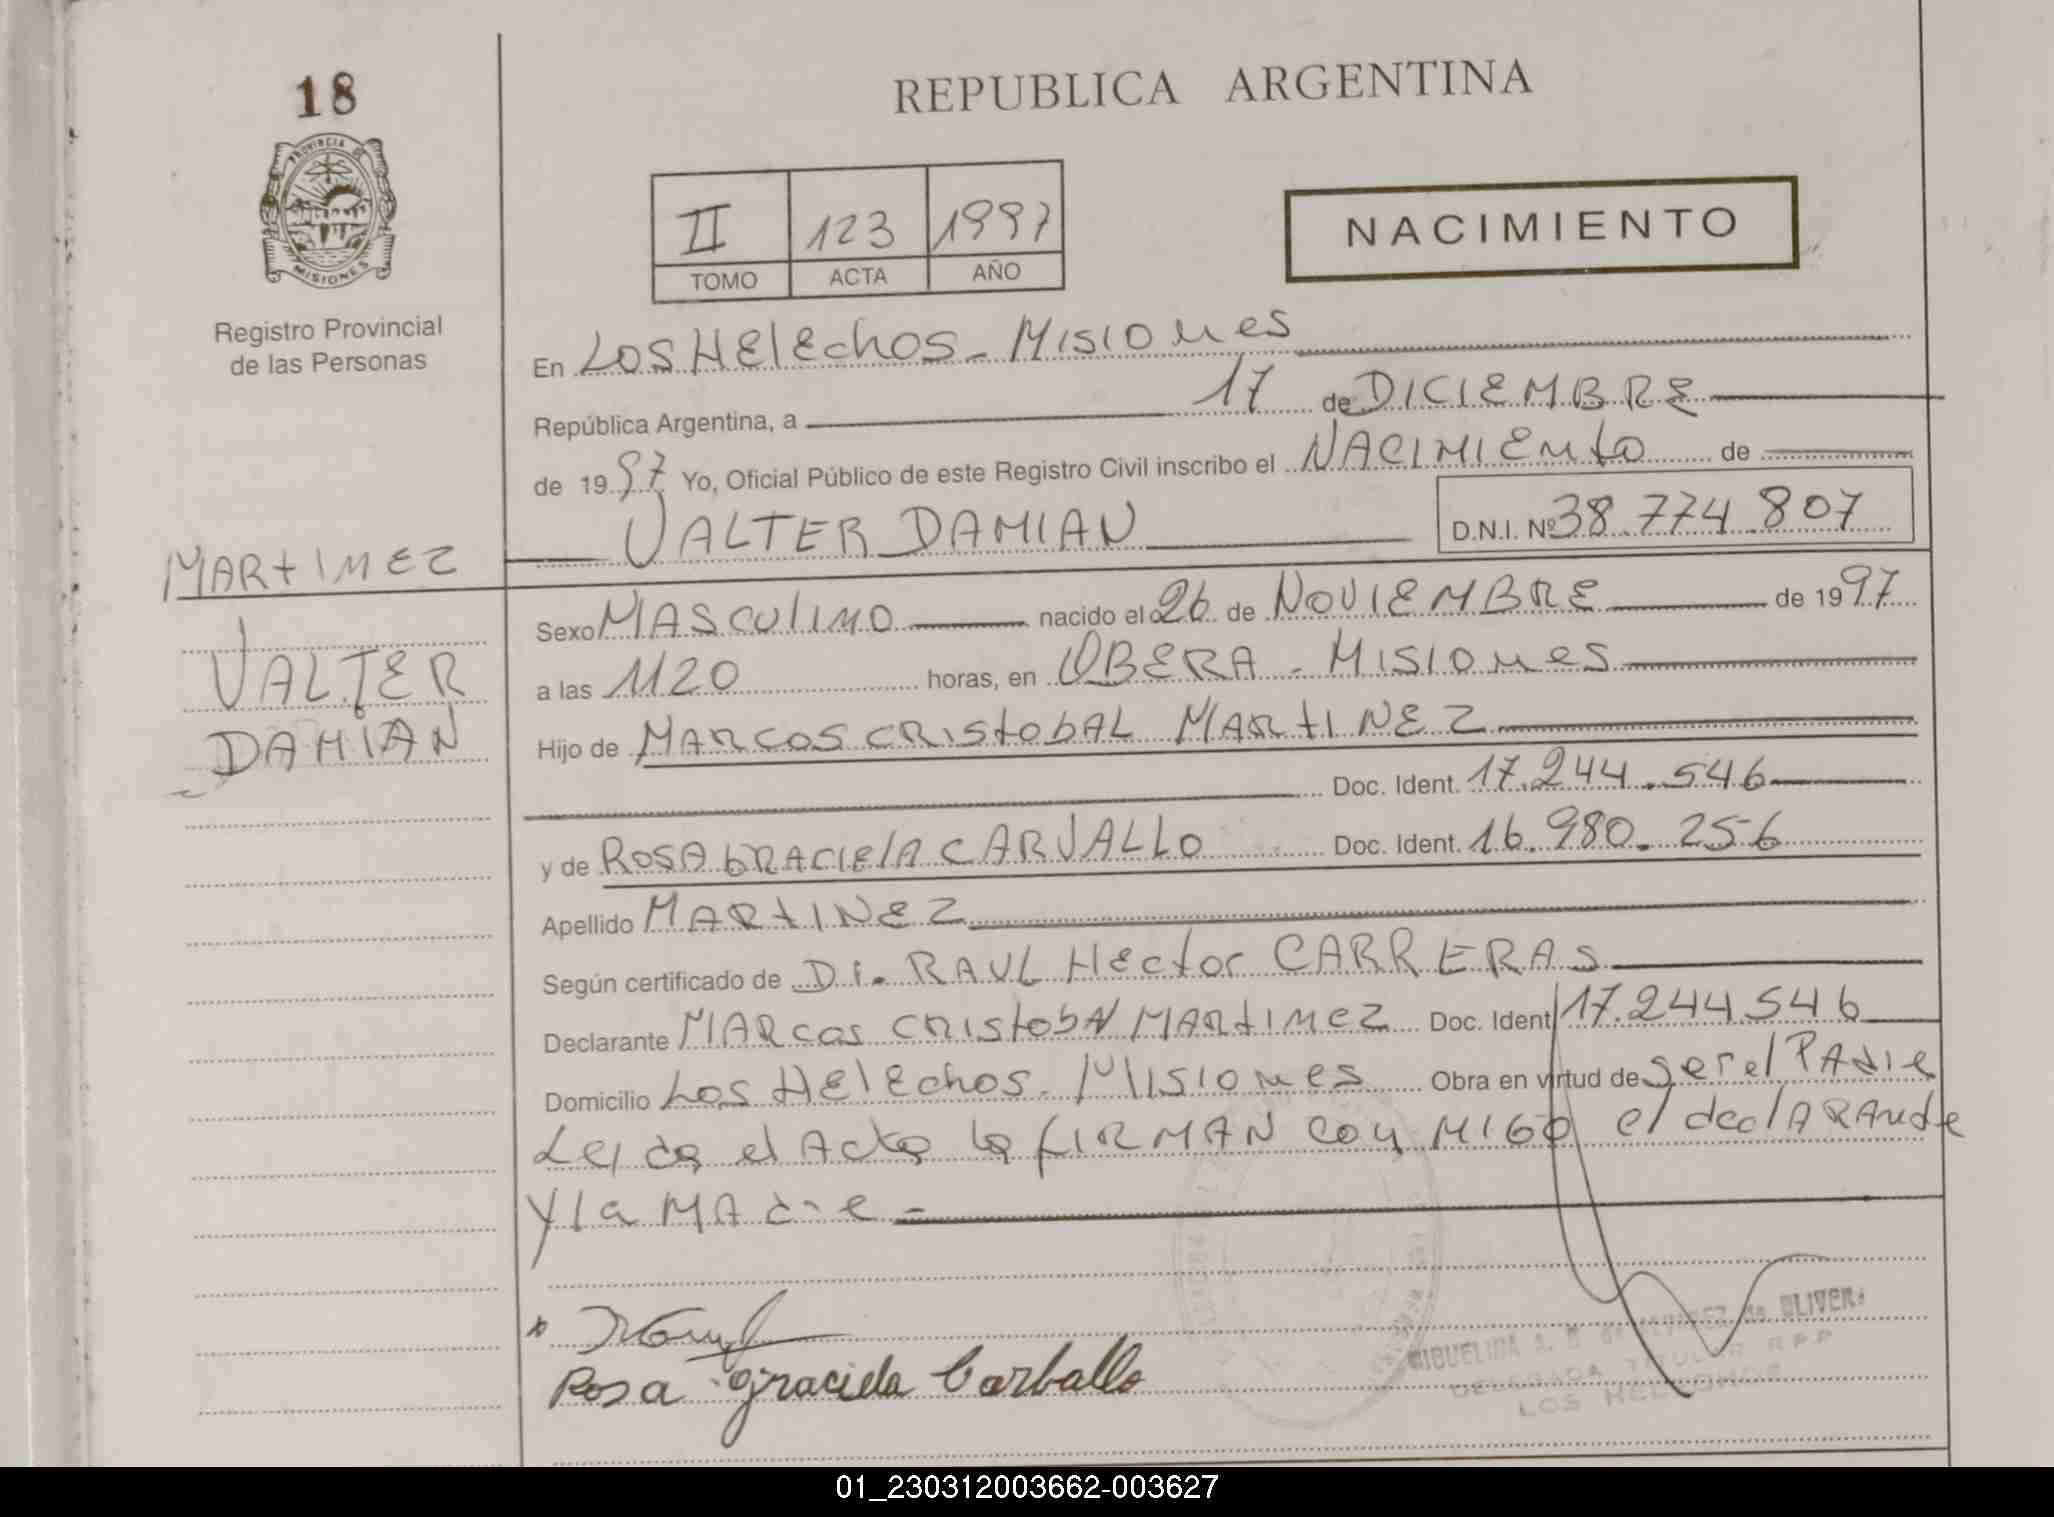 18
REPUBLICA ARGENTINA
PROVINCIA DE
MISIONES
Registro Provincial
de las Personas
II 123 1997
TOMO ACTA AÑO
NACIMIENTO
En Los Helechos - Misiones
República Argentina, a 17 de DICIEMBRE
de 1997 Yo, Oficial Público de este Registro Civil inscribo el NACIMIENTO de
VALTER DAMIAN D.N.I. Nº 38.774.807
MARTINEZ
VALTER
DAMIAN
Sexo MASCULINO nacido el 26 de NOVIEMBRE de 1997
a las 1120 horas, en OBERA - Misiones
Hijo de MARCOS CRISTOBAL MARTINEZ
Doc. Ident. 17.244.546
y de ROSA GRACIELA CARVALLO Doc. Ident. 16.980.256
Apellido MARTINEZ
Según certificado de Dr. RAUL Hector CARRERAS
Declarante MARCOS CRISTOBAL MARTINEZ Doc. Ident 17.244.546
Domicilio Los Helechos - Misiones Obra en virtud de ser el Padre
Leida el Acta la FIRMAN con MIGO el declARANte
Y la MAdre -
Rosa Graciela Carballo
DE OLIVERA
DELEGADA TITULAR RPP
LOS HELECHOS
01_230312003662-003627